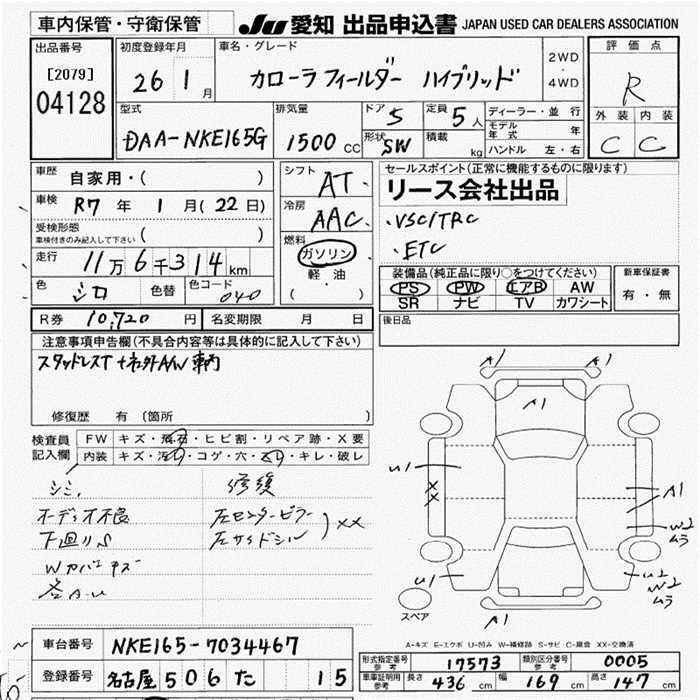 車内保管・守衛保管
JU 愛知 出品申込書 JAPAN USED CAR DEALERS ASSOCIATION
出品番号
[2079]
04128
初度登録年月
26 1月
車名・グレード
カローラフィールダー ハイブリッド
2WD
・
4WD
評価点
R
外装 内装
C C
型式
DAA-NKE165G
排気量
1500 CC
ドア 5
形状 SW
定員 5人
積載 kg
ディーラー・並行
モデル年式 年
ハンドル 左・右
車歴 自家用・( )
車検 R7年 1月(22日)
受検形態
車検付きのみ記入して下さい ( )
走行 11万6千314km
色 シロ 色替 色コード 040
シフト AT
冷房 AAC
燃料
ガソリン
軽・油
( )
セールスポイント(正常に機能するものに限ります)
リース会社出品
・VSC/TRC
・ETC
装備品(純正品に限り○をつけてください)
PS PW エアB AW
SR ナビ TV カワシート
新車保証書
有・無
R券 10,720円 名変期限 月 日
後日品
注意事項申告欄(不具合内容等は具体的に記入して下さい)
スタッドレスT
車輌
修復歴 有 〔箇所 〕
検査員
記入欄
FW キズ・飛石・ヒビ割・リペア跡・X要
内装 キズ・汚れ・コゲ・穴・スレ・キレ・破レ
シミ,
オーディオ不良
下回りS
Wカバーキズ
各A-U
修復
左センターピラー
左サイドシル
XX
A1 A1
A1
U1
X
X
A1
W2
ムラ
U1
U2
W2
ムラ
A1
スペア
A-キズ E-エクボ U-凹み W-補修跡 S-サビ C-腐食 XX-交換済
車台番号 NKE165-7034467
登録番号 名古屋 506 た 15
形式指定番号
参考
17573
類別区分番号
参考
0005
車庫証明用
参考
長さ 436 cm 幅 169 cm 高さ 147 cm